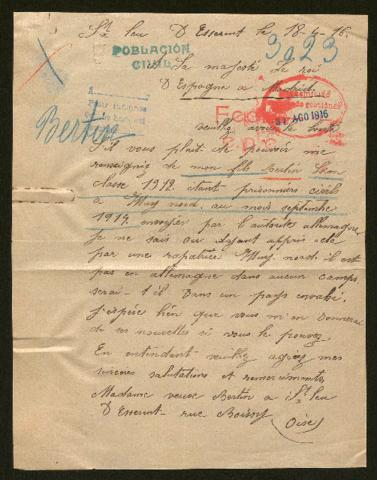 St Leu D Esserent le 18-4-16.
3923
POBLACIÓN
CIVIL
Sa majesté Le roi
D'Espagne a Madrid
31 AGO 1916
Bertin
veuillez avoir la bonté
s'il vous plait de pouvoir me
renseigner de mon fils Bertin Léon
classe 1912 étant prisonnier civil
a Muy nord, au mois septembre
1914 envoyer par l'autorité allemagne,
je ne sais ou ayant appris cela
par une rapatriée Muy nord il est
pas en allemagne dans aucun camps
serai-t'il Dans un pays envahi,
j'espère bien que vous m'en donnerai
de ses nouvelles si vous le pouvez
En entendant veuillez agréez mes
sincères salutations et remerciments
Madame veuve Bertin a St Leu
D Esserent rue Boissy
Oise